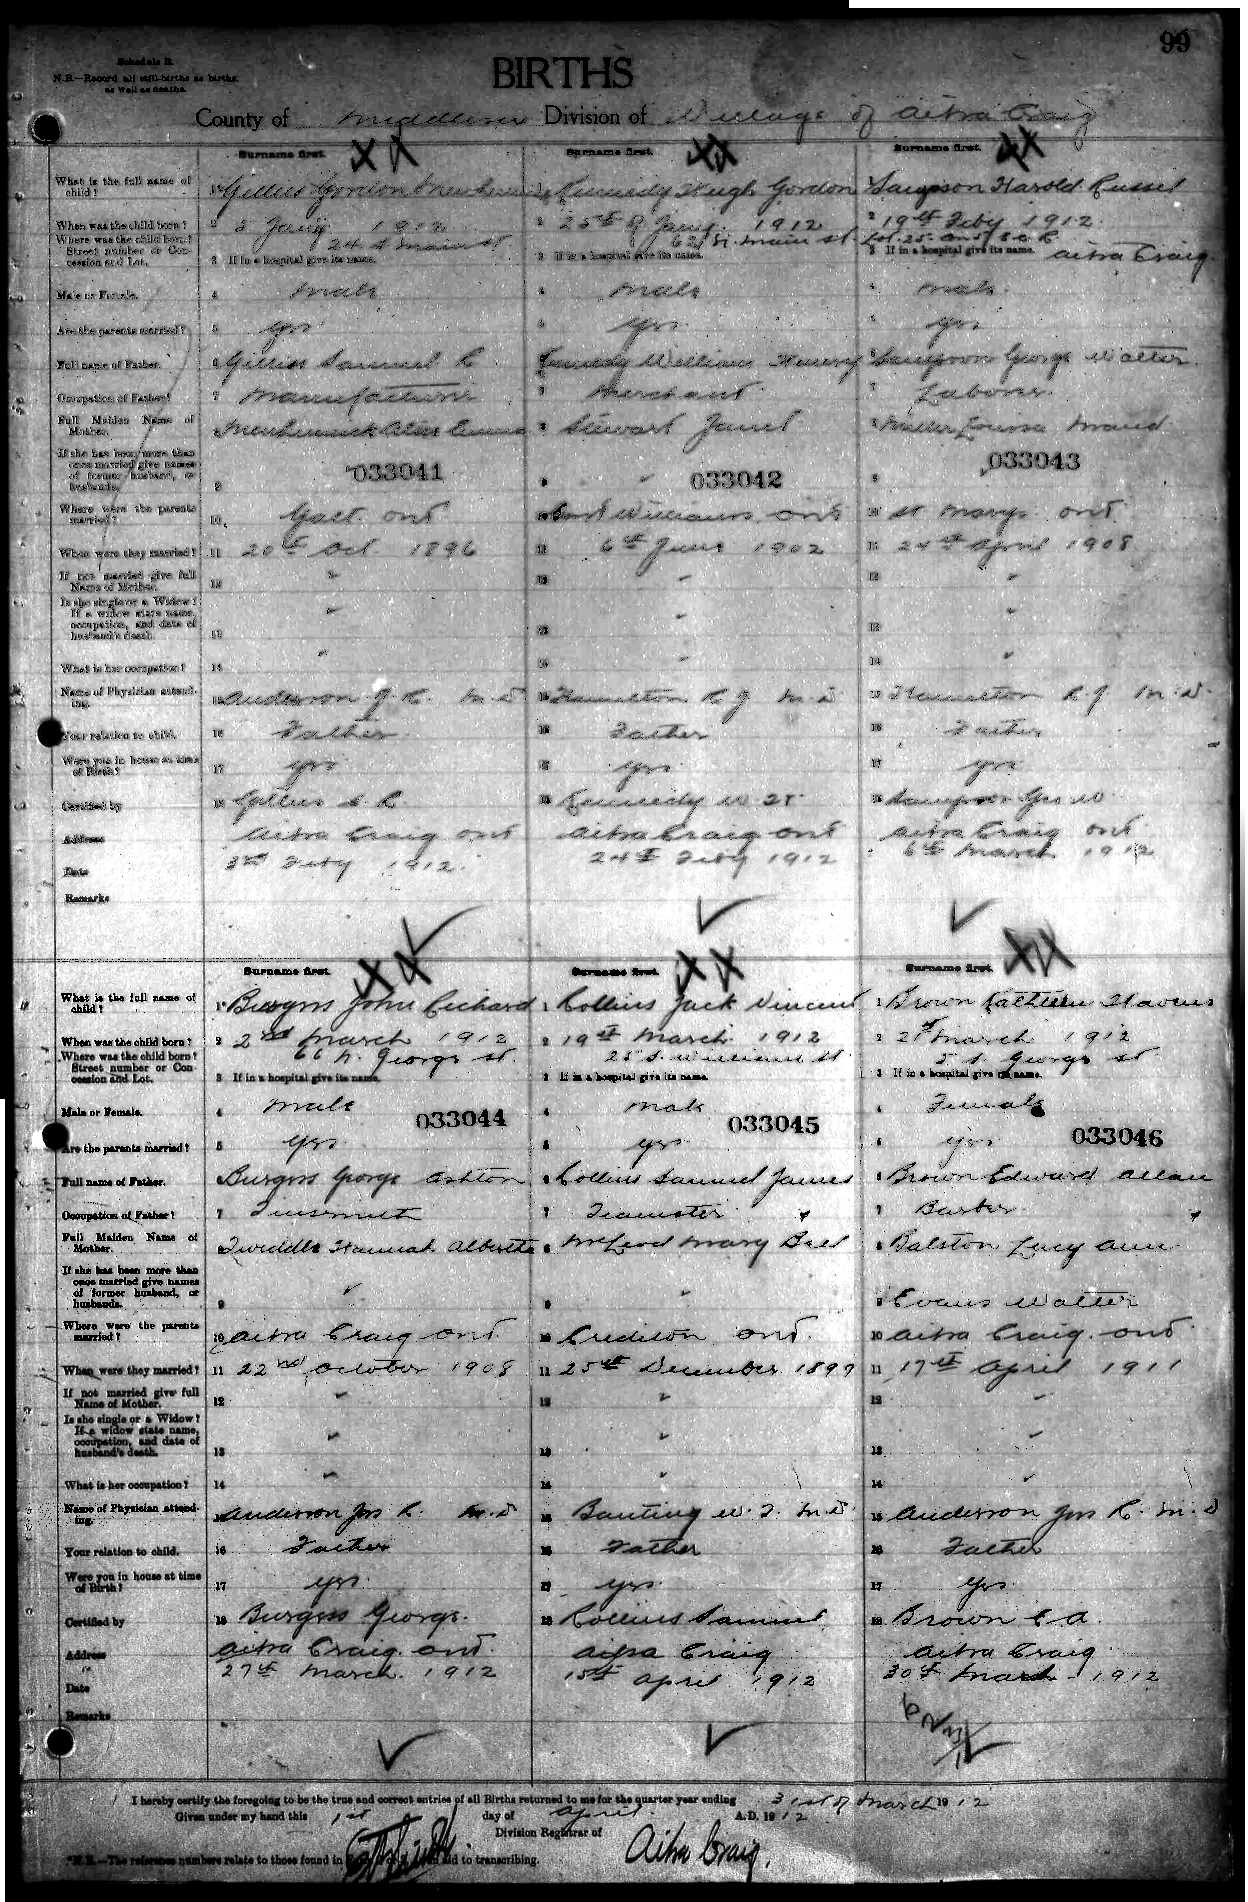 99
Schedule B.
N.B.—Record all still-births as births,
as well as deaths.
BIRTHS
County of Middlesex Division of Village of Ailsa Craig
Surname first. Surname first. Surname first.
What is the full name of child? 1 Gillies Gordon 1 Kennedy Hugh Gordon 1 Sampson Harold Russel
When was the child born? 2 3 Jany 1912 2 25th of Jany 1912 2 19th Feby 1912
Where was the child born? Street number or Concession and Lot. 24 main st 62 N. main st Lot. 25. Con 5 S.C.R
3 If in a hospital give its name. 3 If in a hospital give its name. 3 If in a hospital give its name. Ailsa Craig
Male or Female. 4 male 4 male 4 male
Are the parents married? 5 yes 5 yes 5 yes
Full name of Father. 6 Gillies Samuel R 6 Kennedy William Henery 6 Sampson George Walter
Occupation of Father? 7 Manufacturer 7 Merchant 7 Laborer
Full Maiden Name of Mother. 8 8 Stewart Janet 8 Miller Louisa Maud
If she has been more than once married give names of former husband, or husbands. 9 033041 9 " 033042 9 033043
Where were the parents married? 10 Galt ont 10 Williams ont 10 St Marys ont
When were they married? 11 20th Oct 1896 11 6th June 1902 11 24th April 1908
If not married give full Name of Mother. 12 " 12 " 12 "
Is she single or a Widow? If a widow state name, occupation, and date of husband's death. 13 " 13 " 13 "
What is her occupation? 14 " 14 " 14 "
Name of Physician attending. 15 Anderson J. R. M.D 15 Hamilton R J M.D 15 Hamilton R J M.D.
Your relation to child. 16 Father 16 Father 16 Father
Were you in house at time of Birth? 17 yes 17 yes 17 yes
Certified by 18 Gillies S. R. 18 Kennedy W H 18 Sampson Geo W
Address Ailsa Craig ont Ailsa Craig ont Ailsa Craig ont
Date 3rd Feby 1912. 24th Feby 1912 6th March 1912
Remarks
Surname first. Surname first. Surname first.
What is the full name of child? 1 Burgess John Richard 1 Collins Jack Vincent 1 Brown Kathleen Havens
When was the child born? 2 2nd March 1912 2 19th March 1912 2 21st March 1912
Where was the child born? Street number or Concession and Lot. 66 N. George st 25 S. William st. 5 S. George st
3 If in a hospital give its name. 3 If in a hospital give its name. 3 If in a hospital give its name.
Male or Female. 4 male 033044 4 male 033045 4 Female
Are the parents married? 5 yes 5 yes 5 yes 033046
Full name of Father. 6 Burgess George Ashton 6 Collins Samuel James 6 Brown Edward Allan
Occupation of Father? 7 Tinsmith 7 Teamster 7 Barber
Full Maiden Name of Mother. 8 Tweddle Hannah Alberta 8 McLeod Mary Bell 8 Balston Lucy Ann
If she has been more than once married give names of former husband, or husbands. 9 " 9 " 9 Evans Walter
Where were the parents married? 10 Ailsa Craig ont 10 Crediton ont. 10 Ailsa Craig. ont
When were they married? 11 22nd October 1908 11 25th December 1899 11 17th April 1911
If not married give full Name of Mother. 12 " 12 " 12 "
Is she single or a Widow? If a widow state name, occupation, and date of husband's death. 13 " 13 " 13 "
What is her occupation? 14 " 14 " 14 "
Name of Physician attending. 15 Anderson Jos R. M.D 15 Banting W. T. M.D 15 Anderson Jos R. M.D
Your relation to child. 16 Father 16 Father 16 Father
Were you in house at time of Birth? 17 yes 17 yes 17 yes
Certified by 18 Burgess George. 18 Collins Samuel 18 Brown E A.
Address Ailsa Craig. ont. Ailsa Craig Ailsa Craig
Date 27th March. 1912 15th April 1912 30th March 1912
Remarks
I hereby certify the foregoing to be the true and correct entries of all Births returned to me for the quarter year ending 31st of March 1912
Given under my hand this 1st day of April. A.D. 1912
Division Registrar of Ailsa Craig.
*N.B.—The reference numbers relate to those found in aid to transcribing.